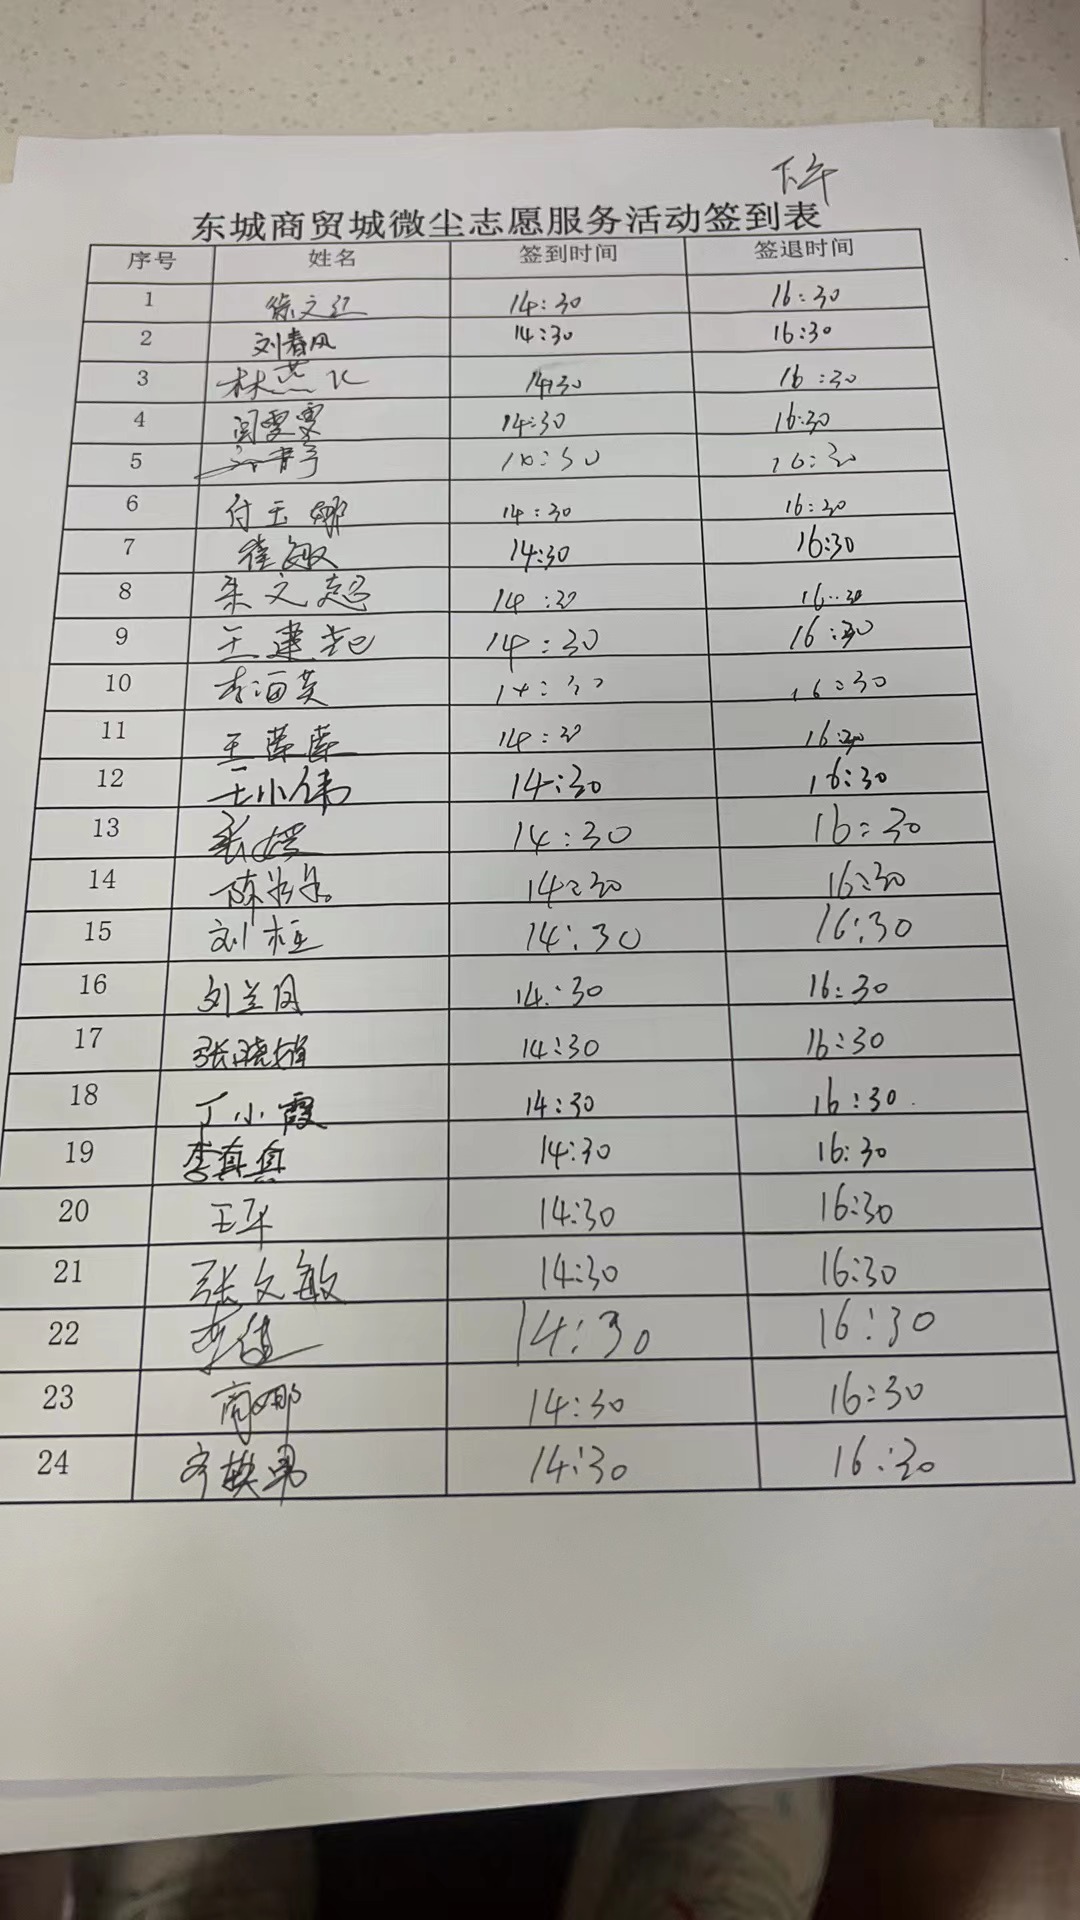 下午
东城商贸城微尘志愿服务活动签到表
序号 姓名 签到时间 签退时间
1 徐文 14:30 16:30
2 刘春风 14:30 16:30
3 林燕 14:30 16:30
4 闫雯雯 14:30 16:30
5 14:30 16:30
6 付玉娜 14:30 16:30
7 崔敏 14:30 16:30
8 朱文超 14:30 16:30
9 王建起 14:30 16:30
10 李海英 14:30 16:30
11 王蕾蕾 14:30 16:30
12 王小伟 14:30 16:30
13 张婷 14:30 16:30
14 陈 14:30 16:30
15 刘桓 14:30 16:30
16 刘兰凤 14:30 16:30
17 张晓娟 14:30 16:30
18 丁小霞 14:30 16:30
19 李真真 14:30 16:30
20 王军 14:30 16:30
21 张文敏 14:30 16:30
22 李健 14:30 16:30
23 商娜 14:30 16:30
24 齐英男 14:30 16:30